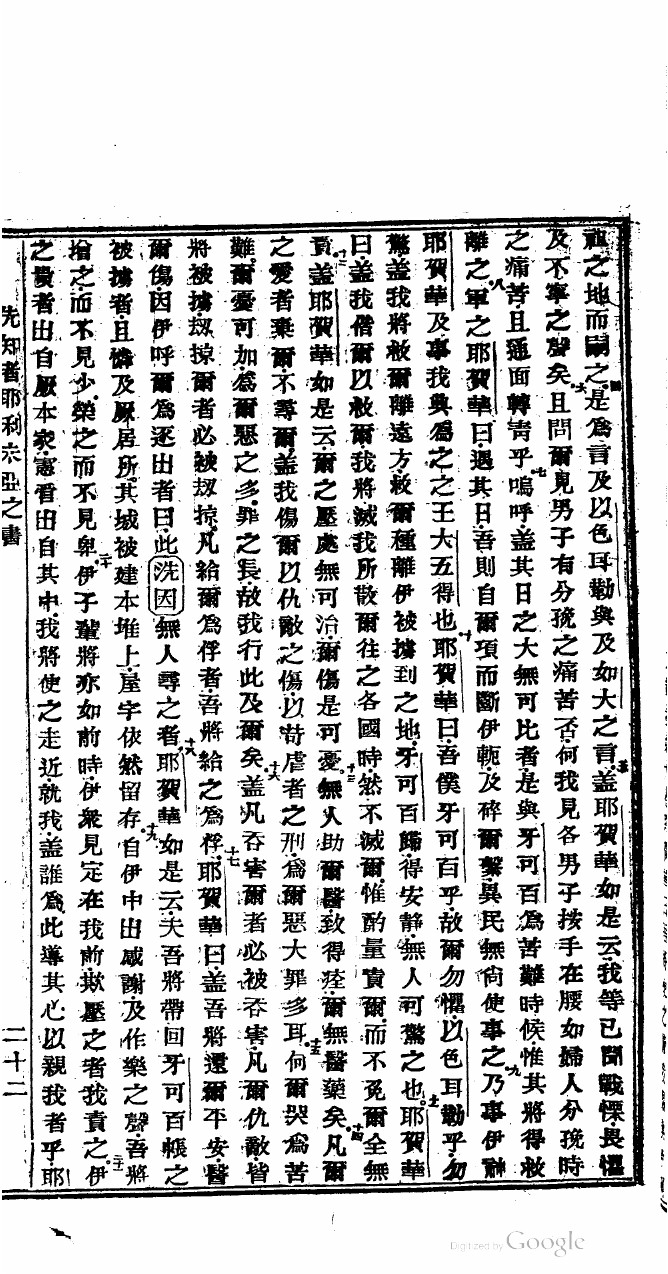 祖之地而嗣之是爲言及以色耳勒與及如大之言蓋耶賀華如是云我等已聞戰慄畏懼
及不寧之聲矣且問爾見男子有分娩之痛苦否何我見各男子按手在腰如婦人分娩時
之痛苦且通面轉青乎嗚呼蓋其日之大無可比者是與牙可百爲苦難時候惟其將得救
離之軍之耶賀華曰遇其日吾則自爾項而斷伊軛及碎爾繫異民無尙使事之乃事伊神
耶賀華及事我興爲之之王大五得也耶賀華曰吾僕牙可百乎故爾勿懼以色耳勒乎勿
驚蓋我將救爾離遠方救爾種離伊被擄到之地牙可百歸得安静無人可驚之也耶賀華
曰蓋我偕爾以救爾我將滅我所散爾往之各國時然不滅爾惟酌量責爾而不免爾全無
責蓋耶賀華如是云爾之壓處無可治爾傷是可憂無人助爾醫致得痊爾無醫藥矣凡爾
之愛者棄爾不尋爾蓋我傷爾以仇敵之傷以苛虐者之刑爲爾惡大罪多耳何爾哭爲苦
難爾憂可加爲爾惡之多罪之長故我行此及爾矣蓋凡吞害爾者必被吞害凡爾仇敵皆
將被擄刼掠爾者必被刼掠凡給爾爲俘者吾將給之爲俘耶賀華曰蓋吾將還爾平安醫
爾傷因伊呼爾爲逐出者曰此洗因無人尋之者耶賀華如是云夫吾將帶回牙可百帳之
被擄者且憐及厥居所其城被建本堆上屋宇依然留存自伊中出感謝及作樂之聲吾將
增之而不見少榮之而不見卑伊子輩將亦如前時伊衆見定在我前欺壓之者我責之伊
之貴者出自厥本家憲督出自其中我將使之走近就我蓋誰爲此導其心以親我者乎耶
先知者耶利米亞之書 二十二
Digitized by Google